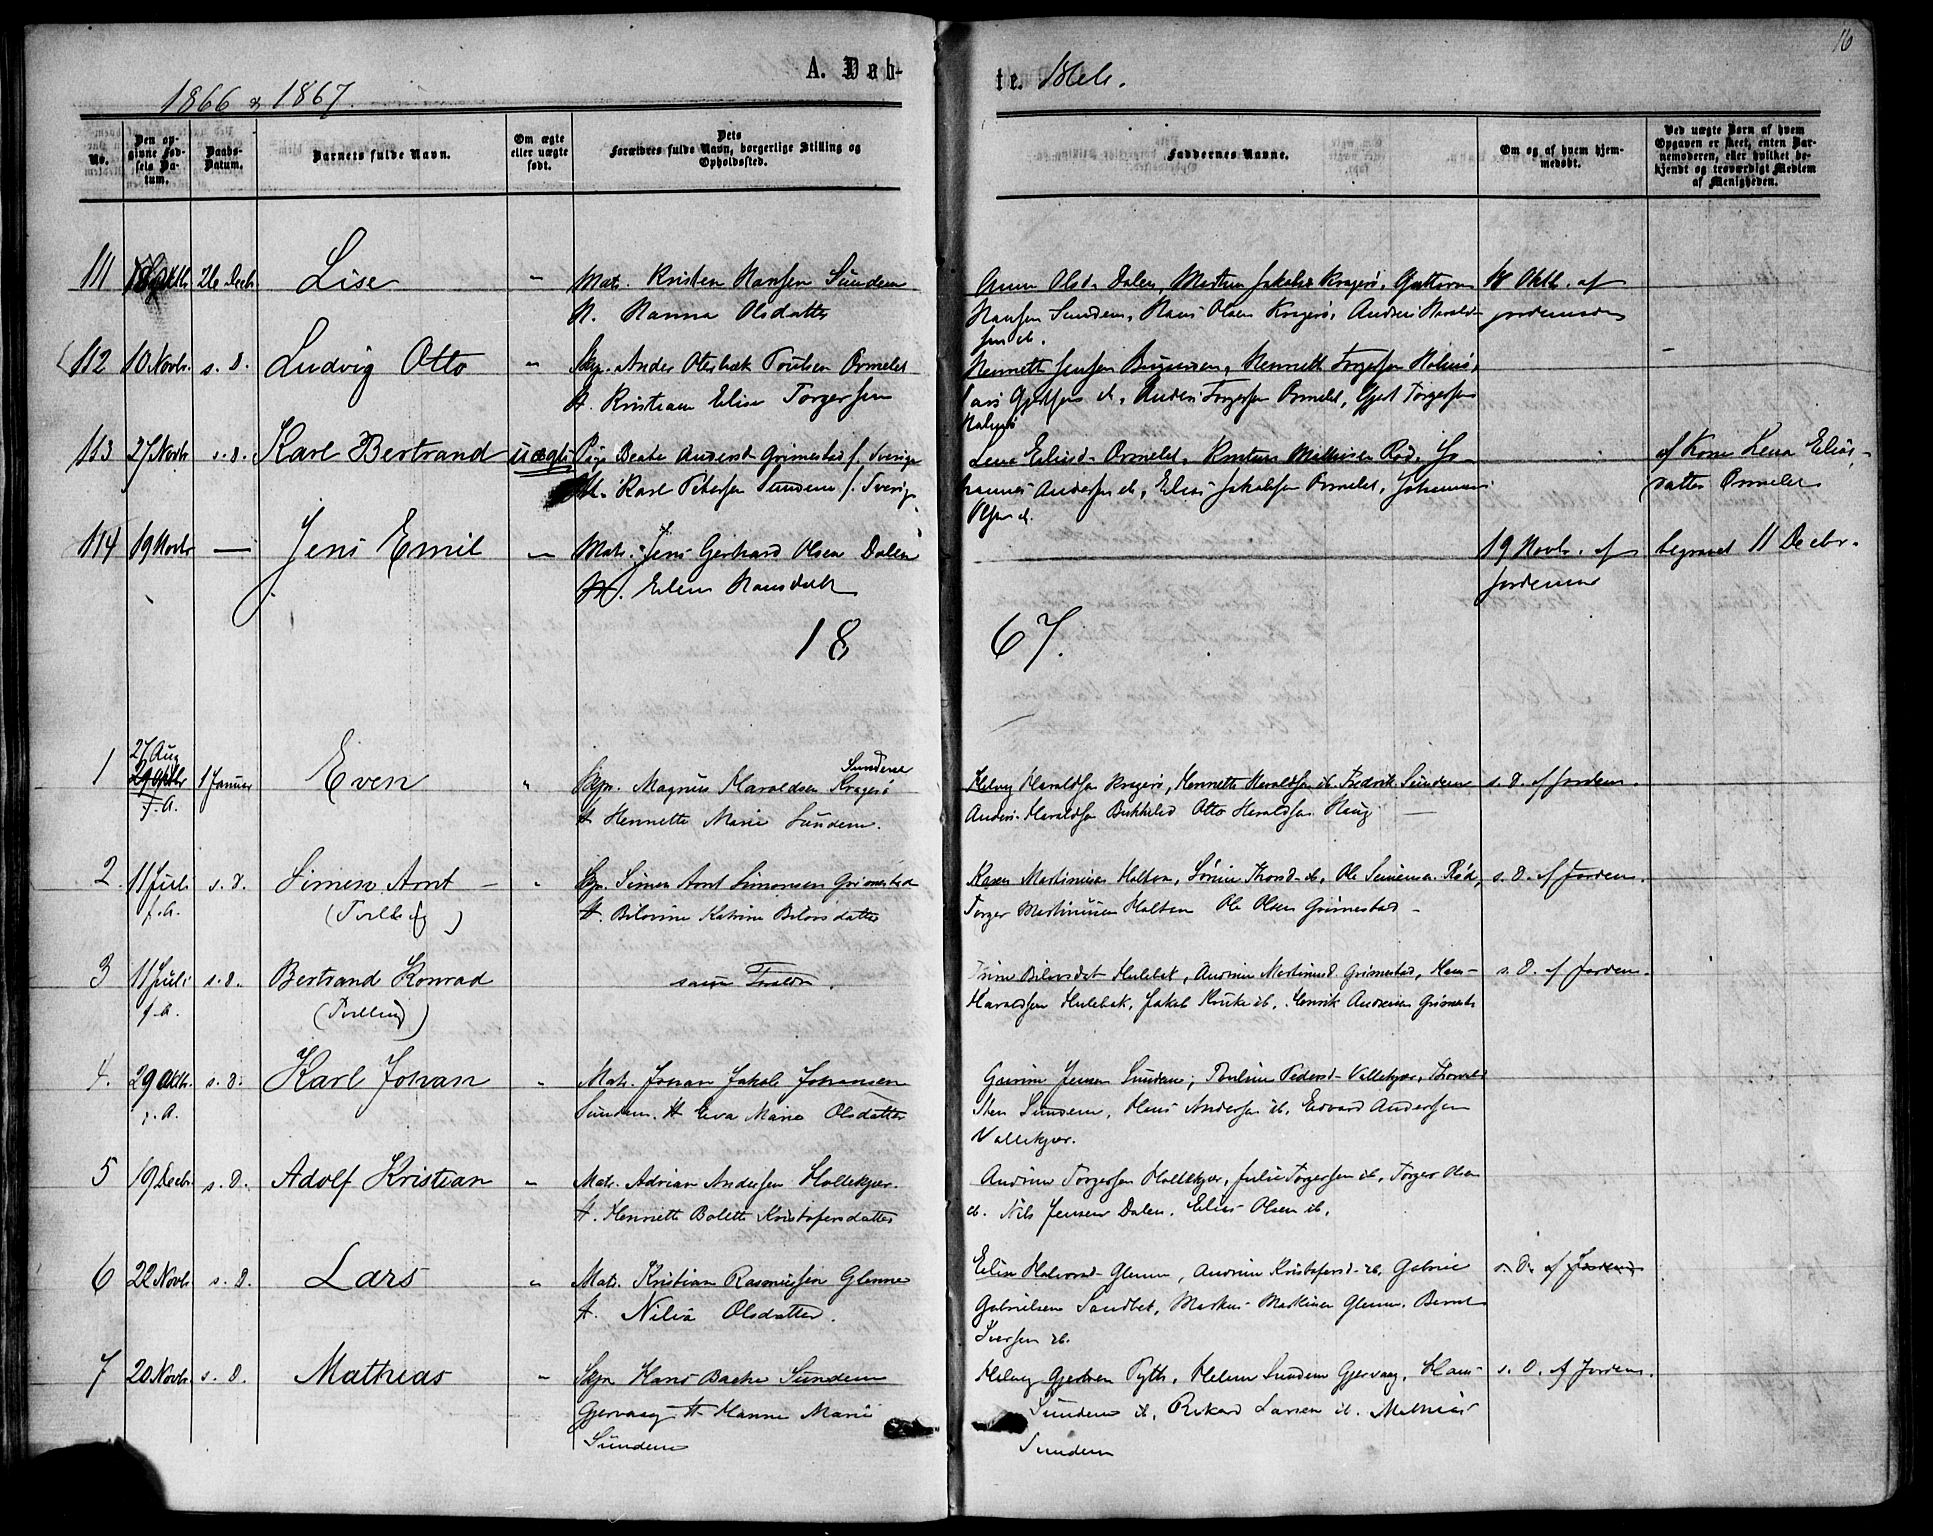 16
A. Døb-
te. Mele.
1866 & 1867.
No.
Den op-
givne Fød-
sels Da-
tum.
Daabs-
Datum.
Barnets fulde Navn.
Om ægte
eller uægte
født.
Dets
Forældres fulde Navn, borgerlige Stilling og
Opholdssted.
Faddernes Navne.
Om og af hvem hjem-
medøbt.
Ved uægte Børn af hvem
Opgaven er skeet, enten Bar-
nemoderen, eller hvilket be-
kjendt og troværdigt Medlem
af Menigheden.
111 26 Decb Lise " Mat. Kristen Hansen Sundene
H. Hanna Olsdatter
Anne Olsd. Dalen, Kragerø, Guttorm
Hansen Sundene, Hans Olsen Kragerø, Anders Harald-
sen ib.
18 Oktb. af
jordemoder
112 10 Novb. s. D. Ludvig Otto " Skp. Anders Oterbæk Poulsen Ormelet
H. Kristiane Elise Torgersen
Hennette Jensen Hennette Torgersen Holmø,
Lars Gjertsen ib, Anders Torgersen Ormelet, Gjert Torgersen
Holmø
113 27 Novb s. D. Karl Bertrand uægte Pige Beate Andersd. Grimestad f. Sverige
M. Karl Petersen Sundene f. Sverige
Lena Eliasd. Ormelet, Mathisen Rød, Jo-
hannes Andersen ib, Elias Jakobsen Ormelet, Johannes
Olsen ib.
af Kone Lena Elias-
datter Ormelet
114 19 Novb — Jens Emil " Mat. Jens Gerhard Olsen Dalen
H. Elen Hansdatt
19 Novb. af
Jordemor
begravet 11 Decbr.
1867.
1 27 Aug
29 Oktbr
f. A. 1 Januar Even " Skp. Magnus Haraldsen Kragerø
Sundene
H. Hennette Marie Sundene.
Helvig Haraldsen Kragerø, Hennette Haraldsen ib. Fredrik Sundene
Anders Haraldsen Bukkelid Otto Haraldsen Haug —
s. D. af Jordem.
2. 11 Juli
f. A. s. D. Simen Arnt —
(Tvilling) " Skp. Simen Arnt Simonsen Grimestad
H. Bilovine Katrine Bilovsdatter
Karen Martinusen Holten, Sørine Thorsd. ib, Ole Simensen Rød,
Torger Martinusen Holten Ole Olsen Grimestad —
s. D. af Jordem.
3 11 Juli
f. A. s. D. Bertrand Konrad
(Tvilling)
samme Forældre.
Trine Bilovsdat Hulebæk, Andrine Martinusd. Grimestad, Hans
Haraldsen Hulebæk, Jakob Kruke ib, Henrik Andersen Grimestad
s. D. af Jordem.
4. 29 Oktb.
f. A. s. D. Karl Johan " Mat. Johan Jakob Johansen
Sundene. H Eva Marie Olsdatter
Gurine Jensen Sundene, Pauline Pedersd. Vallekjær, Thorvald
Sten Sundene, Hans Andersen ib. Edvard Andersen
Vallekjær.
5 19 Decb. s. D. Adolf Kristian " Mat. Adrian Andersen Hollekjær.
H. Henriette Bolette Kristofersdatter
Andrine Torgersen Hollekjær, Julie Torgersen ib, Torger Olsen
ib. Nils Jensen Dalen. Elias Olsen ib.
6 22 Novb. s. D. Lars " Mat. Kristian Rasmussen Glenne
H. Nilia Olsdatter.
Elise Halvorsd. Glenne, Andrine Kristofersd. ib, Gabriel
Gabrielsen Sandbek, Markus Markusen Glenne, Bernt
Iversen ib.
s. D. af Jordem
7 20 Novb. s. D. Mathias " Skp. Hans Bache Sundene
Gjervaag H Hanne Marie
Sundene
Helvig Gjertsen Pytte, Helene Sundene Gjervaag, Hans
Sundene ib, Rikard Larsen ib. Mathias
Sundene
s. D. af Jordem.